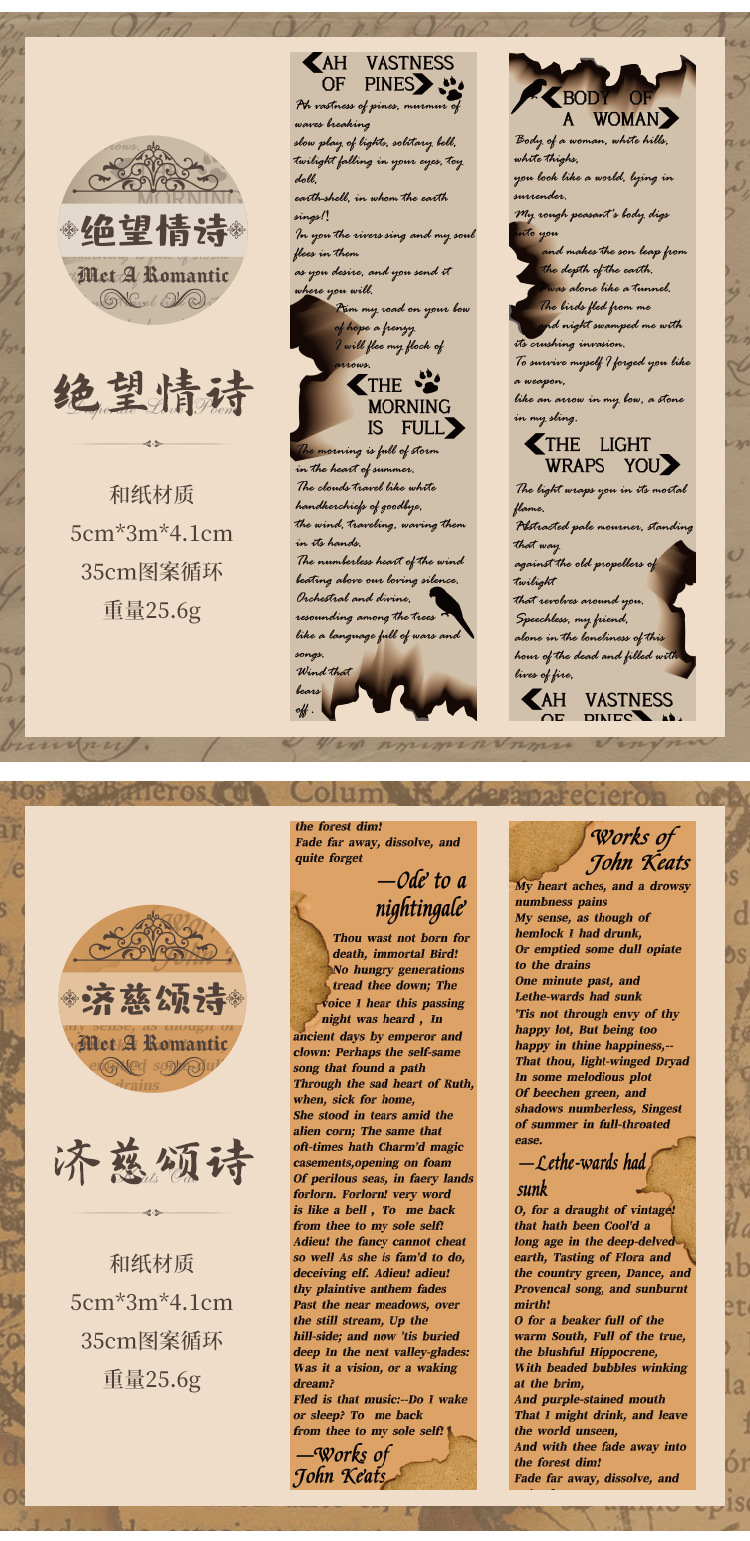 绝望情诗
Met A Romantic
绝望情诗
和纸材质
5cm*3m*4.1cm
35cm图案循环
重量25.6g
AH VASTNESS
OF PINES
Ah vastness of pines, murmur of
waves breaking
slow play of lights, solitary bell,
twilight falling in your eyes, toy
doll,
earth-shell, in whom the earth
sings!!
In you the rivers sing and my soul
flees in them
as you desire, and you send it
where you will.
Aim my road on your bow
of hope a frenzy
I will flee my flock of
arrows.
THE
MORNING
IS FULL
The morning is full of storm
in the heart of summer.
The clouds travel like white
handkerchiefs of goodbye,
the wind, traveling, waving them
in its hands.
The numberless heart of the wind
beating above our loving silence.
Orchestral and divine,
resounding among the trees
like a language full of wars and
songs.
Wind that
bears
off .
BODY OF
A WOMAN
Body of a woman, white hills,
white thighs,
you look like a world, lying in
surrender.
My rough peasant's body digs
into you
and makes the son leap from
the depth of the earth.
was alone like a tunnel.
The birds fled from me
and night swamped me with
its crushing invasion.
To survive myself I forged you like
a weapon,
like an arrow in my bow, a stone
in my sling.
THE LIGHT
WRAPS YOU
The light wraps you in its mortal
flame.
Abstracted pale mourner, standing
that way
against the old propellers of
twilight
that revolves around you.
Speechless, my friend,
alone in the loneliness of this
hour of the dead and filled with
lives of fire,
AH VASTNESS
OF PINES
济慈颂诗
Met A Romantic
济慈颂诗
和纸材质
5cm*3m*4.1cm
35cm图案循环
重量25.6g
the forest dim!
Fade far away, dissolve, and
quite forget
—Ode to a
nightingale
Thou wast not born for
death, immortal Bird!
No hungry generations
tread thee down; The
voice I hear this passing
night was heard , In
ancient days by emperor and
clown: Perhaps the self-same
song that found a path
Through the sad heart of Ruth,
when, sick for home,
She stood in tears amid the
alien corn; The same that
oft-times hath Charm'd magic
casements,opening on foam
Of perilous seas, in faery lands
forlorn. Forlorn! very word
is like a bell , To me back
from thee to my sole self!
Adieu! the fancy cannot cheat
so well As she is fam'd to do,
deceiving elf. Adieu! adieu!
thy plaintive anthem fades
Past the near meadows, over
the still stream, Up the
hill-side; and now 'tis buried
deep In the next valley-glades:
Was it a vision, or a waking
dream?
Fled is that music:--Do I wake
or sleep? To me back
from thee to my sole self!
—Works of
John Keats
Works of
John Keats
My heart aches, and a drowsy
numbness pains
My sense, as though of
hemlock I had drunk,
Or emptied some dull opiate
to the drains
One minute past, and
Lethe-wards had sunk
'Tis not through envy of thy
happy lot, But being too
happy in thine happiness,--
That thou, light-winged Dryad
In some melodious plot
Of beechen green, and
shadows numberless, Singest
of summer in full-throated
ease.
—Lethe-wards had
sunk
O, for a draught of vintage!
that hath been Cool'd a
long age in the deep-delved
earth, Tasting of Flora and
the country green, Dance, and
Provencal song, and sunburnt
mirth!
O for a beaker full of the
warm South, Full of the true,
the blushful Hippocrene,
With beaded bubbles winking
at the brim,
And purple-stained mouth
That I might drink, and leave
the world unseen,
And with thee fade away into
the forest dim!
Fade far away, dissolve, and